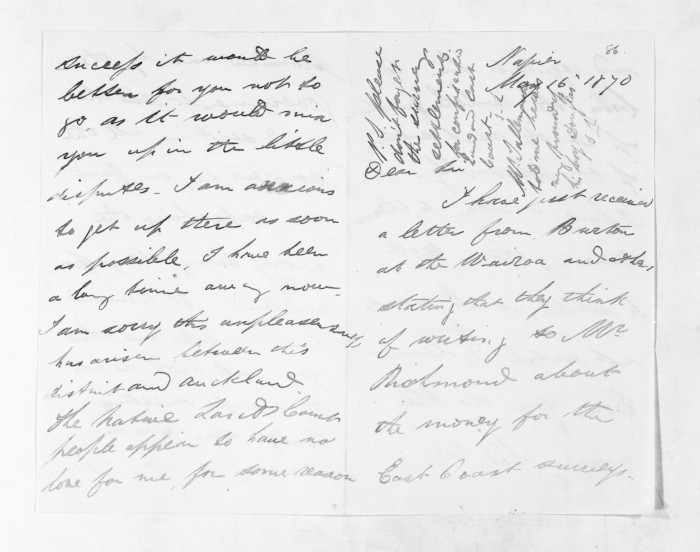 86.
Napier
May 16th 1870
Dear Sir
I have just received
a letter from Burton
at the Wairoa and other,
stating that they think
of writing to Mr
Richmond about
the money for the
East Coast surveys.
success it would be
better for you not to
go as it would mix
you up in the little
disputes. I am anxious
to get up there as soon
as possible, I have been
a long time away now.
I am sorry this unpleasantness
has arisen between this
district and Auckland
The Native Lands Court
people appear to have no
love for me, for some reason
P.S. please
dont forget
the survey
settlement
for confiscated
land East
Coast